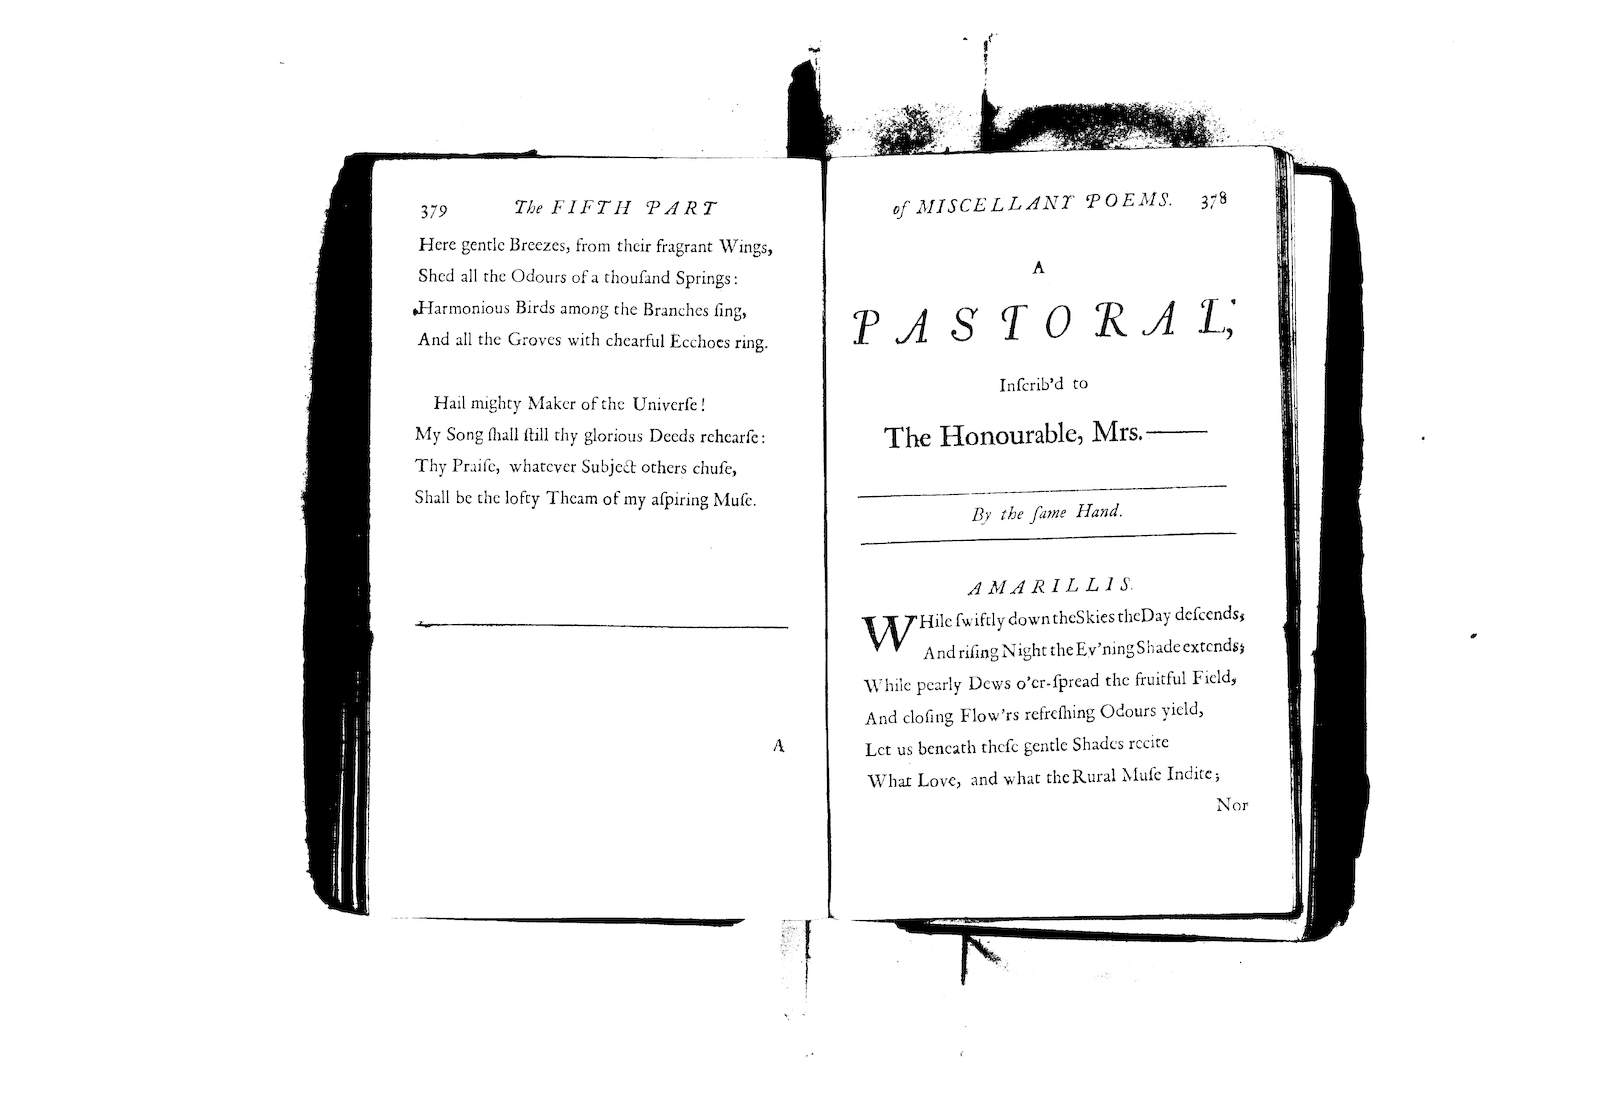 379 The FIFTH PART
Here gentle Breezes, from their fragrant Wings,
Shed all the Odours of a thouſand Springs:
Harmonious Birds among the Branches ſing,
And all the Groves with chearful Ecchoes ring.
Hail mighty Maker of the Univerſe!
My Song ſhall ſtill thy glorious Deeds rehearſe:
Thy Praiſe, whatever Subject others chuſe,
Shall be the lofty Theam of my aſpiring Muſe.
A
of MISCELLANY POEMS. 378
A
PASTORAL,
Inſcrib'd to
The Honourable, Mrs.——
By the ſame Hand.
AMARILLIS.
WHile ſwiftly down the Skies the Day deſcends,
And riſing Night the Ev'ning Shade extends;
While pearly Dews o'er-ſpread the fruitful Field,
And cloſing Flow'rs refreſhing Odours yield,
Let us beneath theſe gentle Shades recite
What Love, and what the Rural Muſe Indite;
Nor